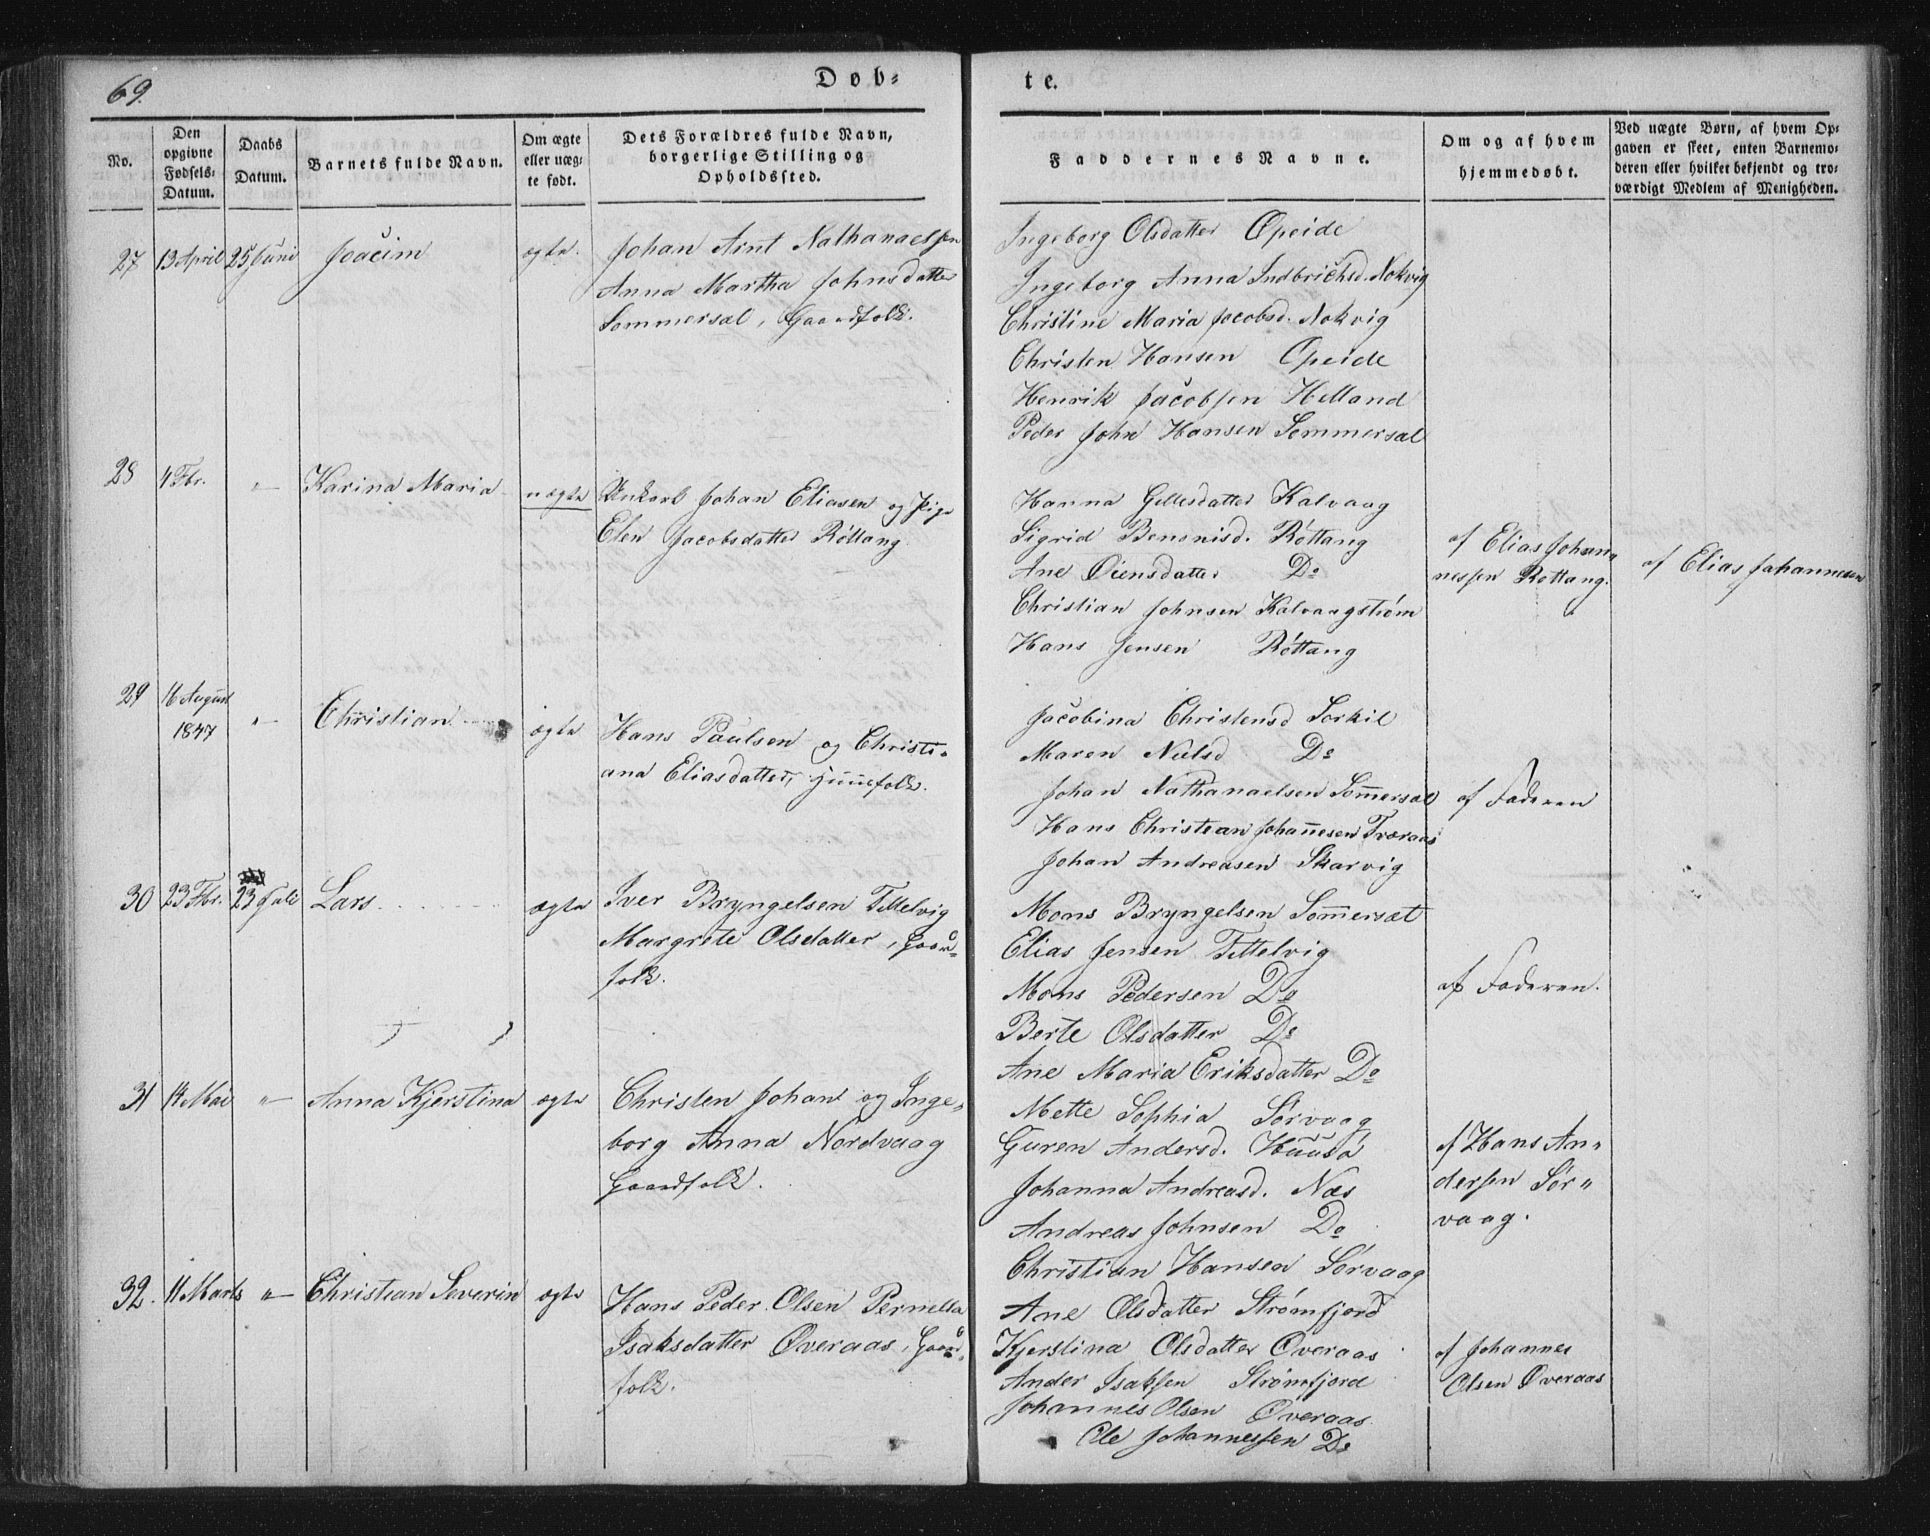 69.
Døb-
te.
No.
Den opgivne Fødsels-Datum.
Daabs Datum.
Barnets fulde Navn.
Om ægte eller uæg-te født.
Dets Forældres fulde Navn, borgerlige Stilling og Opholdssted.
Faddernes Navne.
Om og af hvem hjemmedøbt.
Ved uægte Børn, af hvem Op-gaven er skeet, enten Barnemo-deren eller hvilket bekjendt og tro-værdigt Medlem af Menigheden.
27 13 April 25 Juni Joacim ægte.
Johan Arnt Nathanaelsen
Anna Martha Johnsdatter
Sommersæl, Gaardfolk.
Ingeborg Olsdatter Opeide
Ingeborg Anna Indbrichsd. Nokvig
Christine Maria Jacobsd. Nokvig
Christen Hansen Opeide
Henrik Jacobsen Helland
Peder John Hansen Sommersæl
28 4 Fbr. " Karina Maria uægte
Unkarl Johan Eliasen og Pige
Elen Jacobsdatter Röttang
Hanna Gellesdatter Kalvaag
Sigrid Benonisd. Röttang
Ane Oiensdatter Do
Christian Johnsen Kalvaagstrøm
Hans Jensen Röttang
af Elias Johan-
nessen Rottang.
af Elias Johannesen
29 16 August
1847 " Christian ægte
Hans Paulsen og Christi-
ana Eliasdatter, Huusfolk.
Jacobina Christensd Torkil
Maren Nielsd Do
Johan Nathanaelsen Sommersæl
Hans Christian Johannesen Tveraas
Johan Andreasen Skarvig
af Faderen
30 23 Fbr. 23 Juli Lars ægte
Iver Bryngelsen Tittelvig
Margrete Olsdatter, Gaard-
folk.
Mons Bryngelsen Sommersæt
Elias Jensen Tittelvig
Mons Pedersen Do
Berte Olsdatter Do
Ane Maria Eriksdatter Do
af Faderen.
31 14 Mai " Anna Kjerstina ægte
Christen Johan og Inge-
borg Anna Nordvaag
Gaardfolk.
Mette Sophia Sørvaag
Guren Andersd. Huusö
Johanna Andreasd. Næs
Andreas Johnsen Do
Christian Hansen Sørvaag
af Hans An-
dersen Sør-
vaag.
32. 11 Marts " Christian Severin ægte
Hans Peder Olsen Pernella
Isaksdatter Overaas, Gaard-
folk.
Ane Olsdatter Strømfjord
Kjerstina Olsdatter Overaas
Ander Isaksen Strømfjord
Johannes Olsen Overaas
Ole Johannessen Do
af Johannes
Olsen Overaas